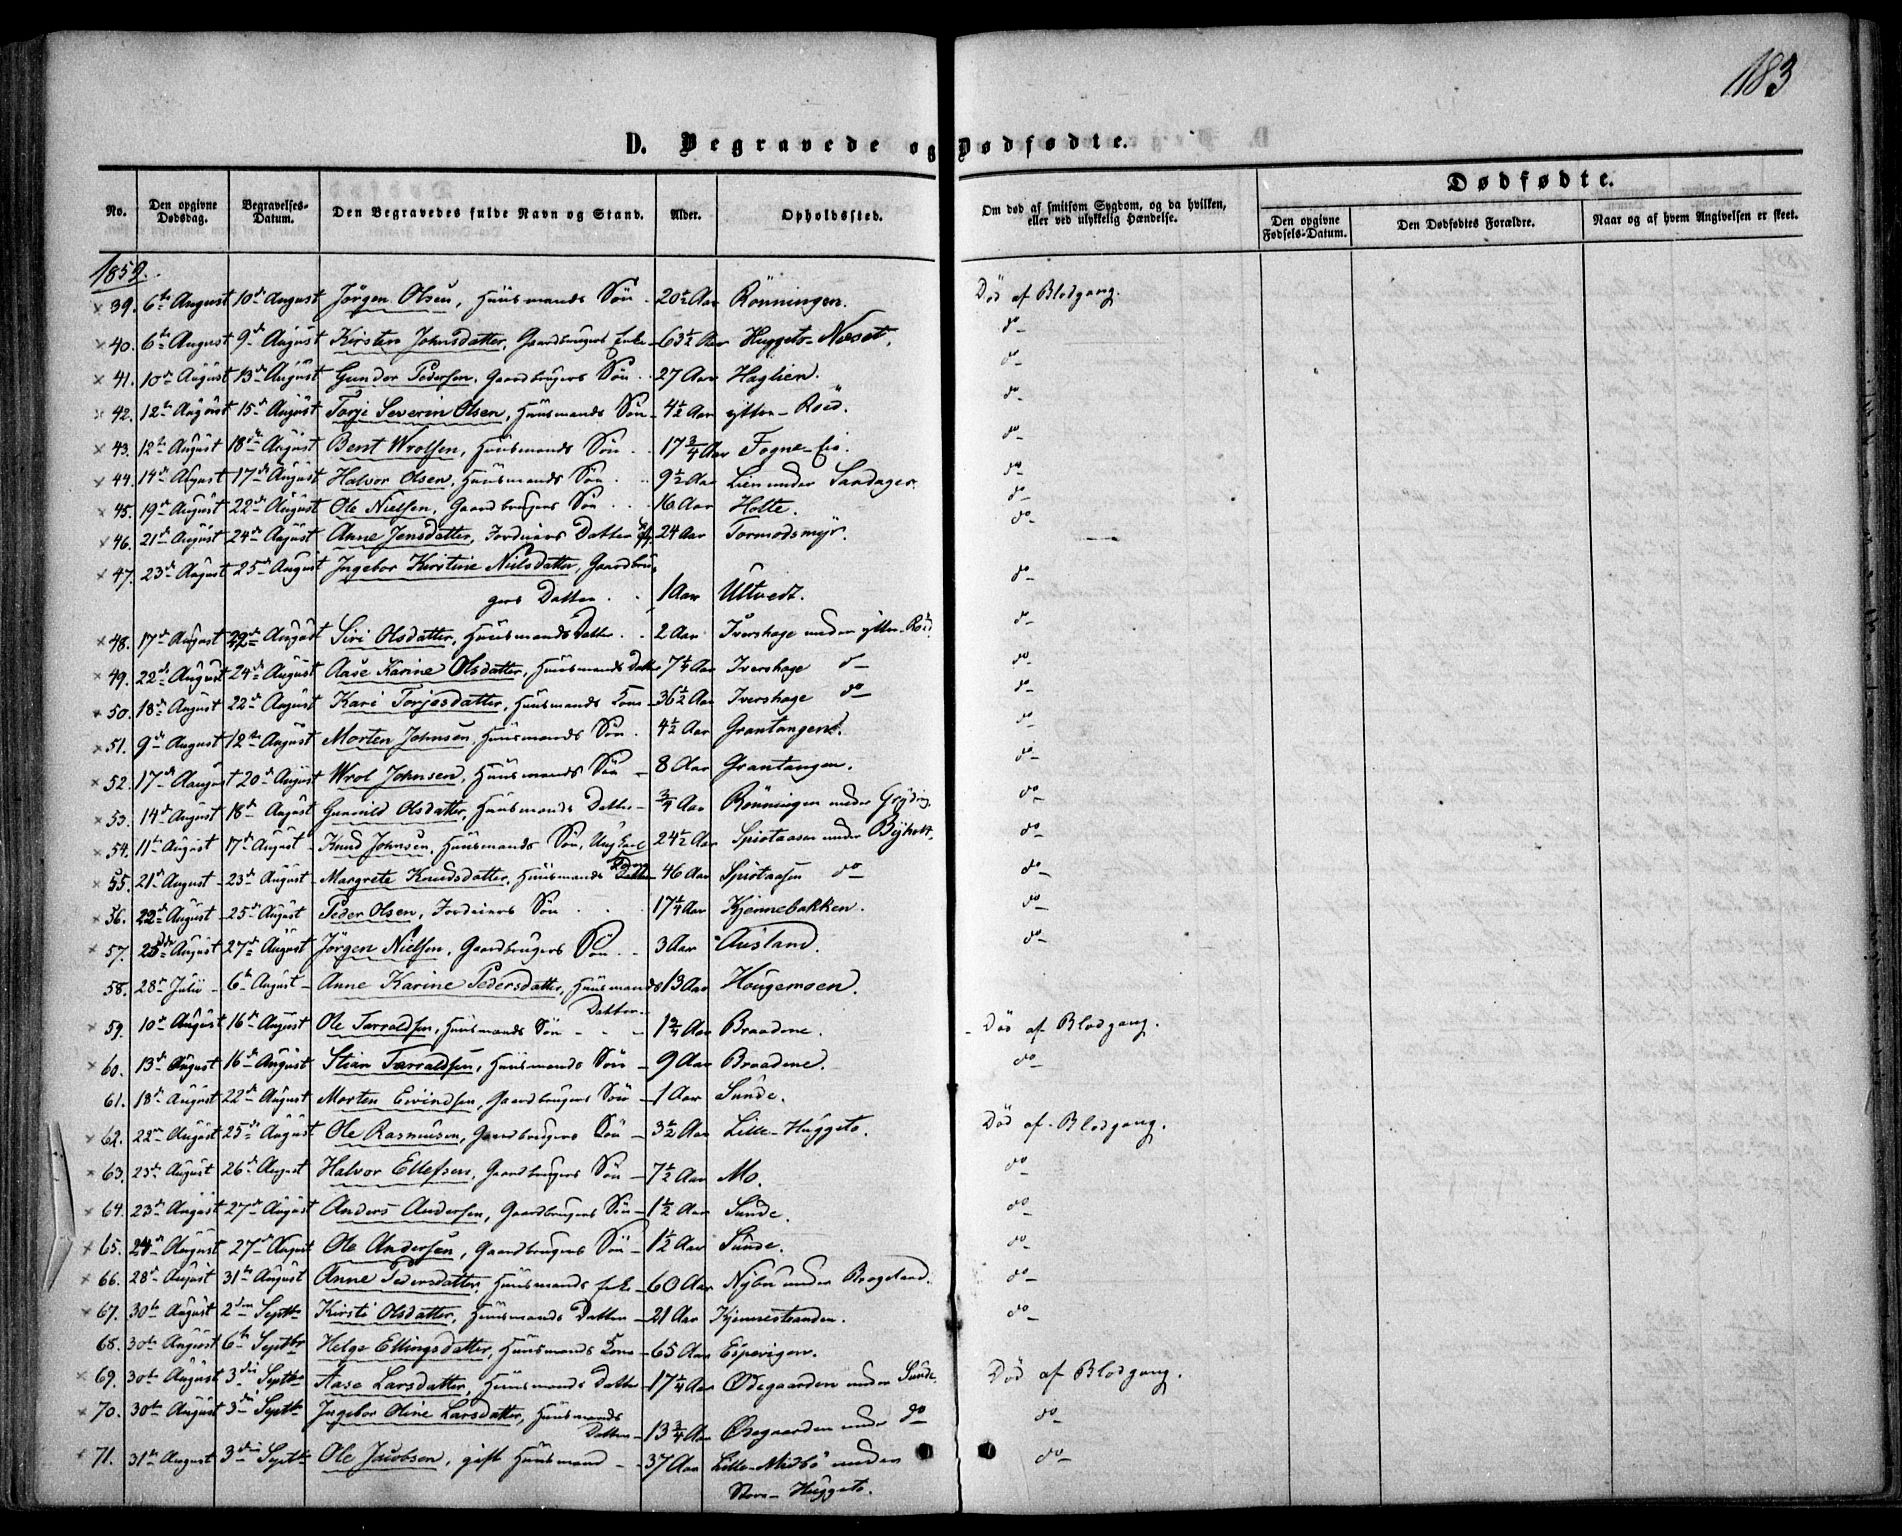 183
D. Begravede og Dødfødte.
No.
Den opgivne Dødsdag.
Begravelses-Datum.
Den Begravedes fulde Navn og Stand.
Alder.
Opholdssted.
Om død af smitsom Sygdom, og da hvilken, eller ved ulykkelig Hændelse.
Dødfødte.
Den opgivne Fødsels-Datum.
Den Dødfødtes Forældre.
Naar og af hvem Angivelsen er skeet.
1859.
39. 6te August 10de August Jörgen Olsen, Huusmands Sön 20½ Aar Rönningen. Död af Blodgang.
40. 6te August 9de August Kirsten Johnsdatter, Gaardbrugers Enke 63½ Aar Huggeto-Næset. do
41. 10de August 13de August Gunder Pedersen, Gaardbrugers Sön 27 Aar Haglien. do
42. 12te August 15de August Torje Severin Olsen, Huusmands Sön 4½ Aar ytter-Röed. do
43. 12te August 18de August Bent Wrolsen, Huusmands Sön 17¾ Aar Fogne-Eie. do
44. 14de August 17de August Halvor Olsen, Huusmands Sön 9½ Aar Lien under Sandager. do
45. 19de August 22de August Ole Nielsen, Gaardbrugers Sön 16 Aar Holte. do
46. 21de August 24de August Anne Jensdatter, Inderiers Datter 24 Aar Tormodsmyr. do
47. 23de August 25de August Ingebor Kirstine Nielsdatter, Gaardbru-
gers Datter 1 Aar Ultvedt. do
48. 17de August 22de August Siri Olsdatter, Huusmands Datter 2 Aar Ivershage under ytter-Röed. do
49. 22de August 24de August Aase Karine Olsdatter, Huusmands Datter 7¼ Aar Ivershage do do
50. 18de August 22de August Kari Torjesdatter, Huusmands Kone 36½ Aar Ivershage do do
51. 9de August 12te August Morten Johnsen, Huusmands Sön 4½ Aar Grantangen. do
52. 17de August 20de August Wrol Johnsen, Huusmands Sön 8 Aar Grantangen. do
53. 14de August 18de August Gunild Olsdatter, Huusmands Datter ¾ Aar Rönningen under do
54. 11te August 17de August Knud Johnsen, Huusmands Sön, Ungkarl 24½ Aar Spiotaasen under Byholt. do
55. 21de August 23de August Margrete Knudsdatter, Huusmands Kone 46 Aar Spiotaasen do do
56. 22de August 25de August Peder Olsen, Sön 17¼ Aar Kjennebakken. do
57. 25de August 27de August Jörgen Nielsen, Gaardbrugers Sön 3 Aar Ausland. do
58. 28de Julii 6te August Anne Karine Pedersdatter, Huusmands
Datter 13 Aar Hougemoen.
59. 10de August 16de August Ole Tarraldsen, Huusmands Sön 1¾ Aar Braadene. Död af Blodgang.
60. 13de August 16de August Stian Tarraldsen, Huusmands Sön 9 Aar Braadene. do
61. 18de August 22de August Morten Eivindsen, Gaardbrugers Sön 1 Aar Sunde.
62. 22de August 25de August Ole Rasmusen, Gaardbrugers Sön 3½ Aar Lille-Huggeto. Död af Blodgang.
63. 23de August 26de August Halvor Ellefsen, Gaardbrugers Sön 7½ Aar Mo. do
64. 23de August 27de August Anders Andersen, Gaardbrugers Sön 1½ Aar Sunde. do
65. 24de August 27de August Ole Andersen, Gaardbrugers Sön 1½ Aar Sunde. do
66. 28de August 31te August Anne Pedersdatter, Huusmands Enke 60 Aar Nybu under Roegeland. do
67. 30te August 2den Septbr Kirsti Olsdatter, Huusmands Datter 21 Aar Kjennestranden. do
68. 30te August 6te Septbr Helge Ellingsdatter, Huusmands Kone 65 Aar Espevigen.
69. 30te August 3die Septbr Aase Larsdatter, Huusmands Datter 17¼ Aar Ødegaarden under Sunde. Död af Blodgang.
70. 30te August 3die Septbr Ingebor Oline Larsdatter, Huusmands
Datter 13¾ Aar Ødegaarden under do do
71. 31te August 3die Septbr Ole Jacobsen, gift Huusmand 37 Aar Lille-Midbö under
Store-Huggeto. do